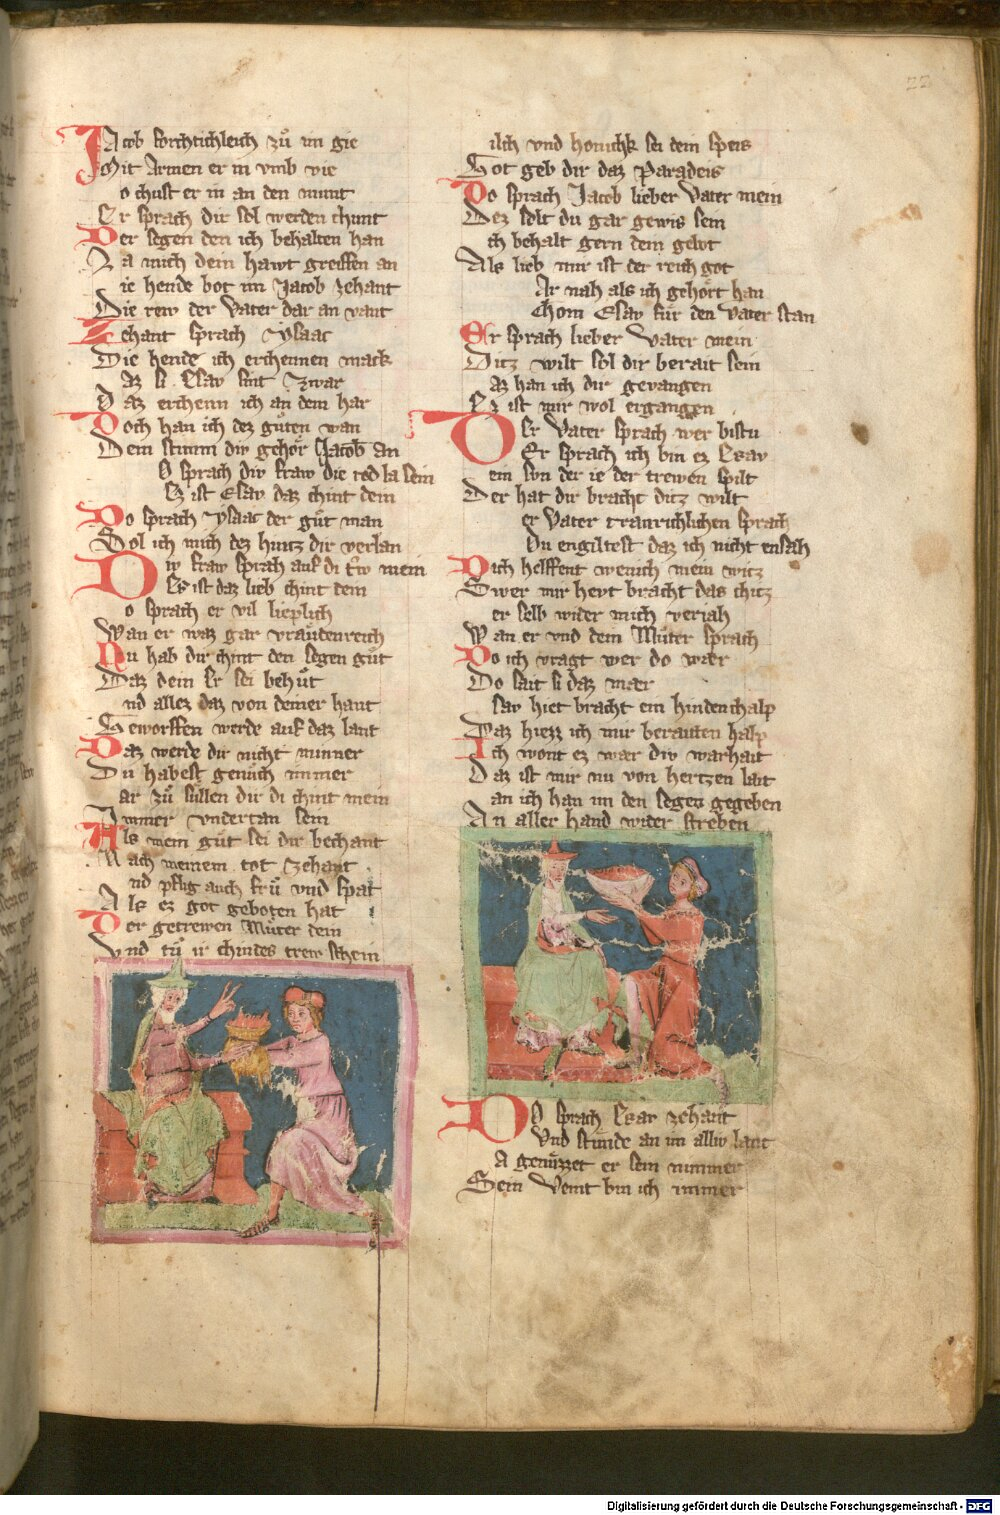 Jacob forchtichleich zů im gie
Mit Armen er in vmb vie
o chust er in an den munt
Er sprach dir sol werden chunt
Der segen den ich behalten han
La mich dein hawt greiffen an
ie hende bot im Jacob zehant
Die rew der Vater dar an vant
Zehant sprach ysaac
Die hende ich erchennen mack
az si Esav sint zwar
Daz erchenn ich an dem har
Doch han ich dez gůten wan
Dein stimm dir gehör Jacob an
O sprach dw fraw die red la sein
Ez ist Esav daz chint dein
Do sprach ysaac der gůt man
Sol ich mich dez huntz dir verlan
Diw fraw sprach auf di trw mein
Es ist daz lieb chint dein
o sprach er vil lieplich
Wan er waz gar vraüdenreich
Nu hab dir chint den segen gůt
Daz dein Er sei behůt
nd allez daz von deiner hant
Geworffen werde auf daz lant
Daz werde dir nicht minner
Du habest genůch immer
ar zů süllen dir di chint mein
Immer vndertan sein
Als mein gůt sei dir bechant
Nach meinem tot zehant
nd pflig auch frů vnd spat
Als ez got geboten hat
Der getrewen Můter dein
Vnd tů ir chindes trew schein
ilch vnd honichk sei dein speis
Got geb dir daz Paradeis
Do sprach Jacob lieber Vater mein
Dez solt du gar gewis sein
ch behalt gern dein gebot
Als lieb mir ist der reich got
Ar nah als ich gehört han
Chom Esav für den Vater stan
Er sprach lieber Vater mein
Ditz wilt sol dir berait sein
az han ich dir gevangen
Ez ist mir wol ergangen
Der Vater sprach wer bistu
Er sprach ich bin ez Esav
ein svn der ie der trewen spilt
Der hat dir bracht ditz wilt
er Vater traurichlichen sprach
Du engiltest daz ich nicht ensah
Dich helffent wenich mein witz
Swer mir hevt bracht das chitz
er selb wider mich veriah
Wan er vnd dein Můter sprach
Do ich vragt wer do wær
Do sait si daz mær
sav hiet bracht ein hindenchalp
Daz hiezz ich mir beraitten halp
Ich wont ez wær div warhait
Daz ist mir nu von hertzen lait
an ich han im den segen gegeben
An aller hand wider streben
DO sprach Esav zehant
Vnd stünde an im alliv lant
A genüzzet er sein nimmer
Sein Veint bin ich immer
22
Digitalisierung gefördert durch die Deutsche Forschungsgemeinschaft - DFG